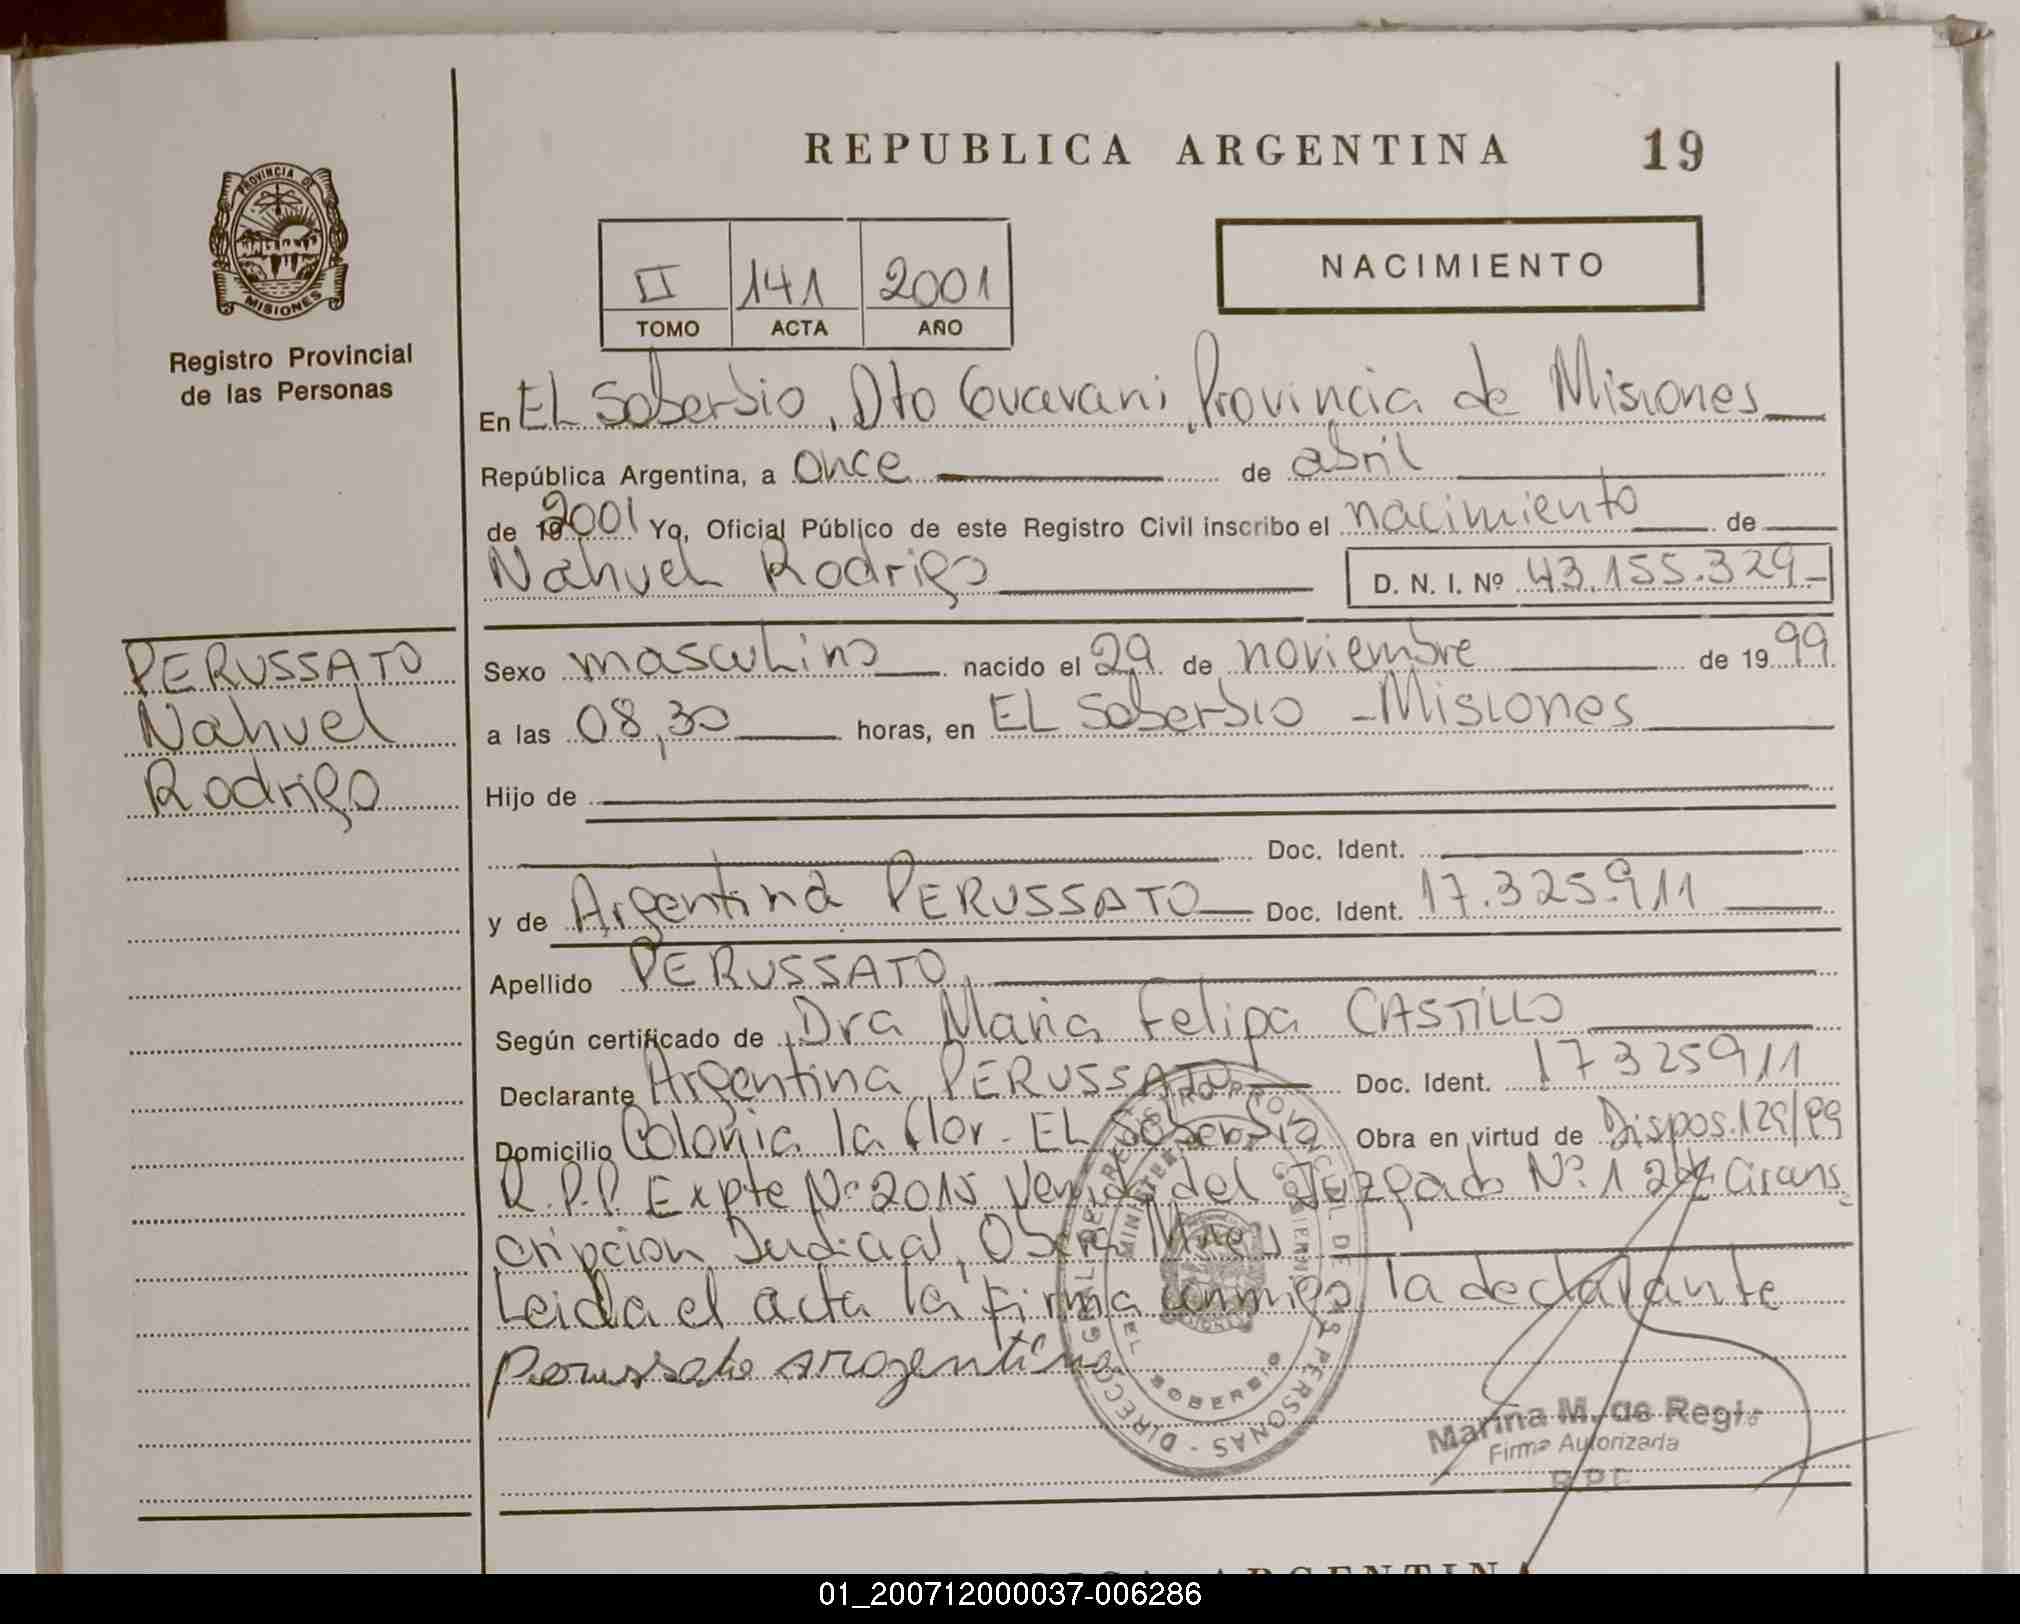 REPUBLICA ARGENTINA 19
PROVINCIA DE MISIONES
Registro Provincial
de las Personas
II 141 2001
TOMO ACTA AÑO
NACIMIENTO
En EL Soberbio, Dto Guarani, Provincia de Misiones
República Argentina, a once de abril
de 19 2001 Yo, Oficial Público de este Registro Civil inscribo el nacimiento de
Nahuel Rodrigo D. N. I. Nº 43.155.329
PERUSSATO
Nahuel
Rodrigo
Sexo masculino nacido el 29 de noviembre de 1999
a las 08,30 horas, en EL Soberbio - Misiones
Hijo de
Doc. Ident.
y de Argentina PERUSSATO Doc. Ident. 17.325.911
Apellido PERUSSATO
Según certificado de Dra Maria Felipa CASTILLO
Declarante Argentina PERUSSATO Doc. Ident. 17325911
Domicilio Colonia la flor - EL Soberbio Obra en virtud de Dispos. 129/99
R.P.P. Expte Nº 2015 Venido del Juzgado Nº 1 2da Circuns
cripcion Judicial, Obera Mnes
Leida el acta la firma conmigo la declarante
Perussato argentina
DIRECC. GRAL. DE REGISTRO PROVINCIAL DE LAS PERSONAS
MINISTERIO DE GOBIERNO
EL SOBERBIO
Marina M. de Regi
Firma Autorizada
01_200712000037-006286